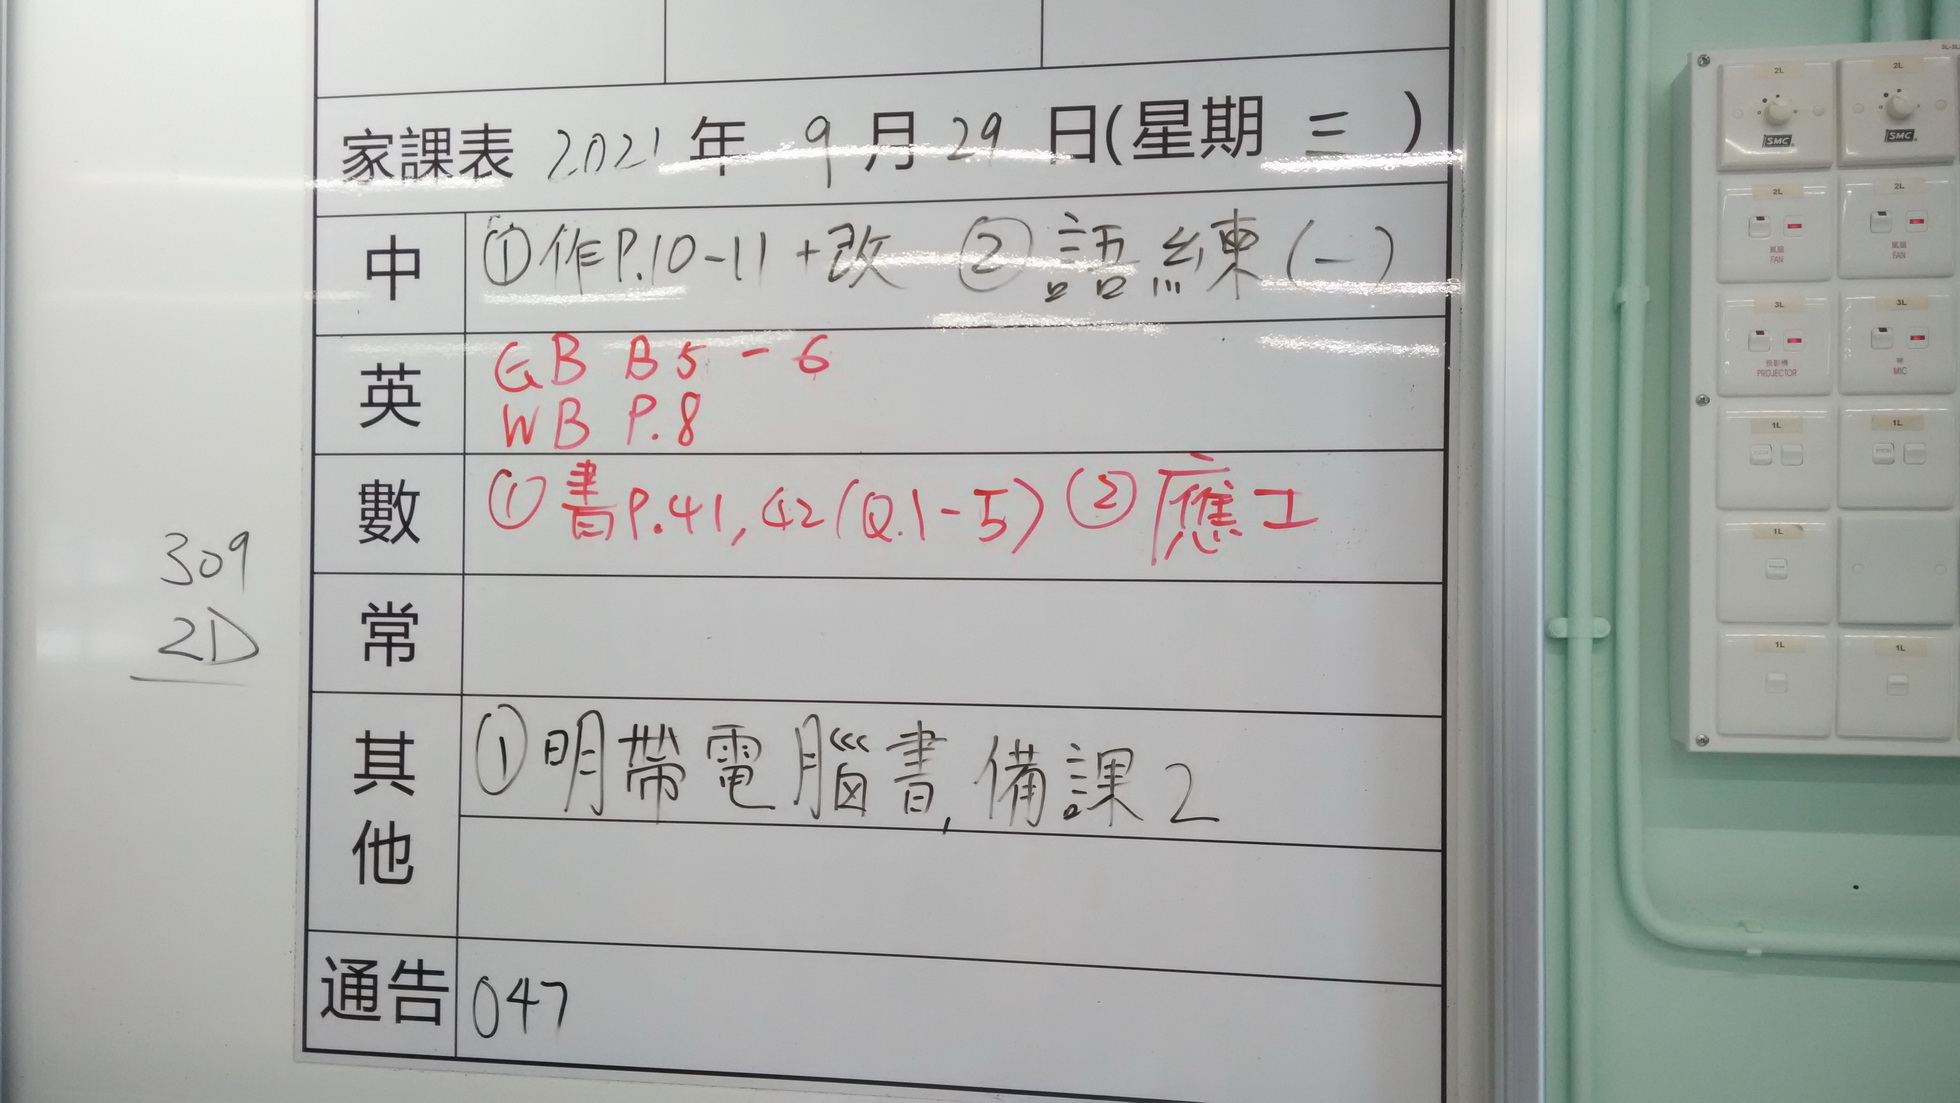 家課表 2021 年 9 月 29 日(星期 三 )
中 ①作P.10-11+改 ②語練(一)
英 GB B5-6
WB P.8
數 ①書P.41, 42(Q.1-5) ②應工
常
其他 ①明帶電腦書, 備課2
通告 047
309
2D
2L 2L
SMC SMC
2L 2L
風扇 風扇
FAN FAN
3L 3L
投影機 咪
PROJECTOR MIC
1L 1L
1L
1L 1L